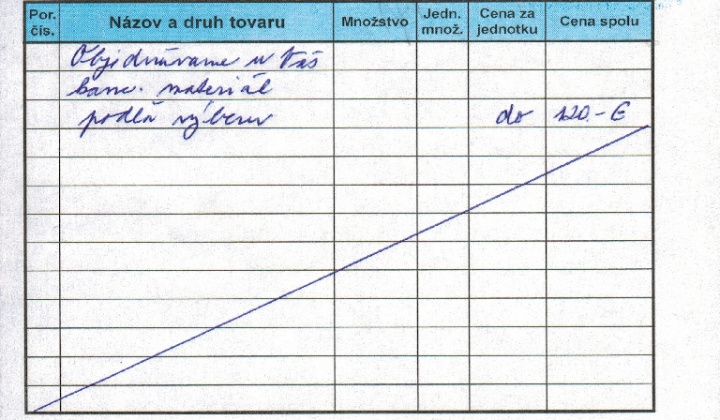 Por. čís. Názov a druh tovaru Množstvo Jedn. množ. Cena za jednotku Cena spolu
Objednávame u Vás
kanc. materiál
podľa výberu do 120.- €